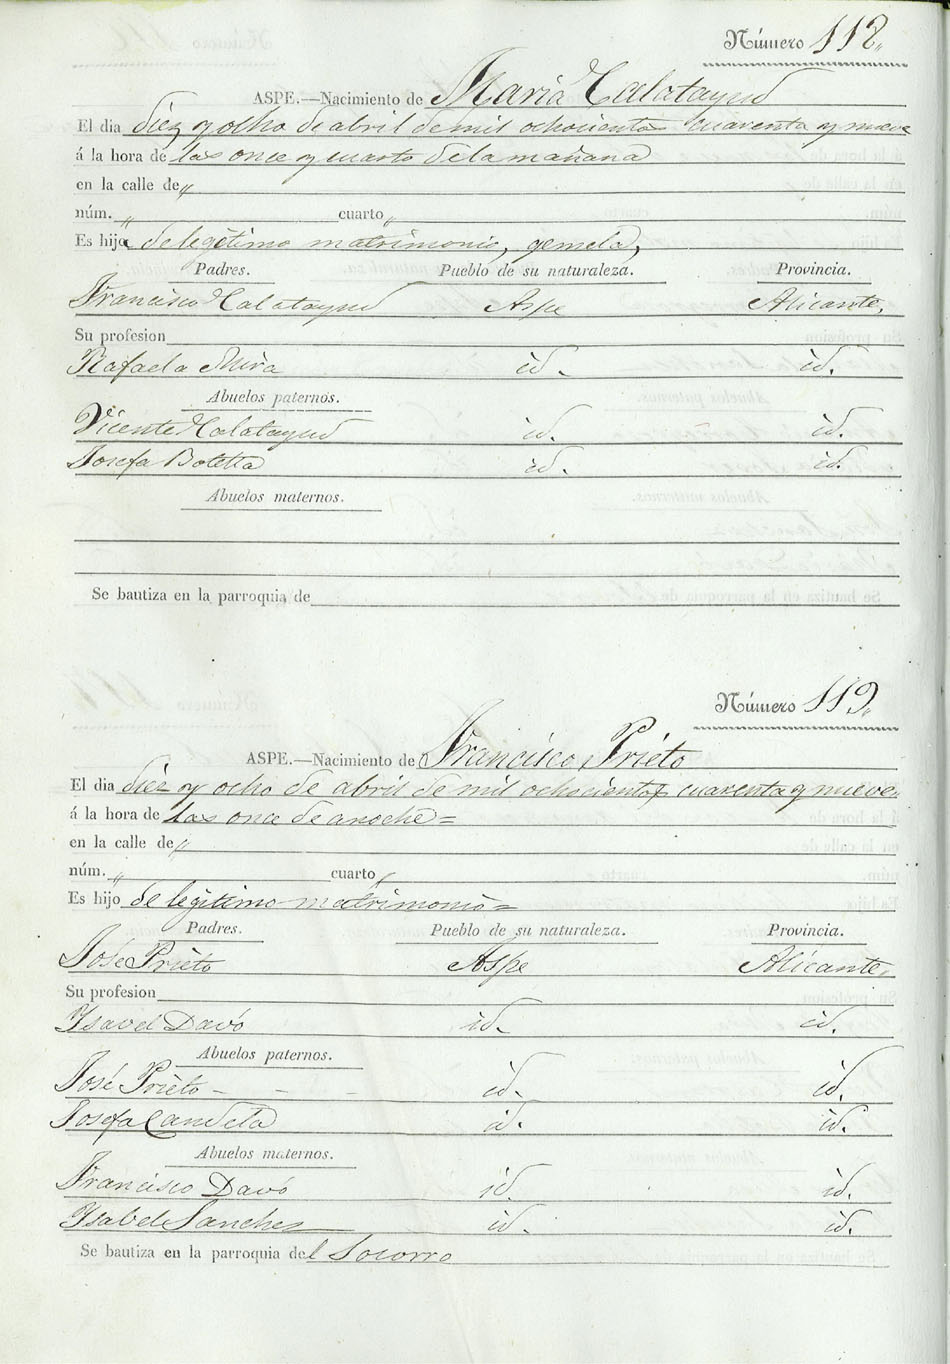 Número 118.
ASPE.—Nacimiento de Maria Calatayud
El dia diez y ocho de abril de mil ochocientos cuarenta y nueve
á la hora de las once y cuarto de la mañana
en la calle de „
núm. „ cuarto „
Es hija de legitimo matrimonio, gemela,
Padres. Pueblo de su naturaleza. Provincia.
Francisco Calatayud Aspe Alicante,
Su profesion
Rafaela Mira id. id.
Abuelos paternos.
Vicente Calatayud id. id.
Josefa Botella id. id.
Abuelos maternos.
Se bautiza en la parroquia de
Número 119.
ASPE.—Nacimiento de Francisco Prieto
El dia diez y ocho de abril de mil ochocientos cuarenta y nueve.
á la hora de las once de anoche=
en la calle de „
núm. „ cuarto „
Es hijo de legitimo matrimonio=
Padres. Pueblo de su naturaleza. Provincia.
José Prieto Aspe Alicante,
Su profesion
Ysavel Davó id. id.
Abuelos paternos.
José Prieto - - - id. id.
Josefa Candela id. id.
Abuelos maternos.
Francisco Davó id. id.
Ysabel Sanchez id. id.
Se bautiza en la parroquia del Socorro